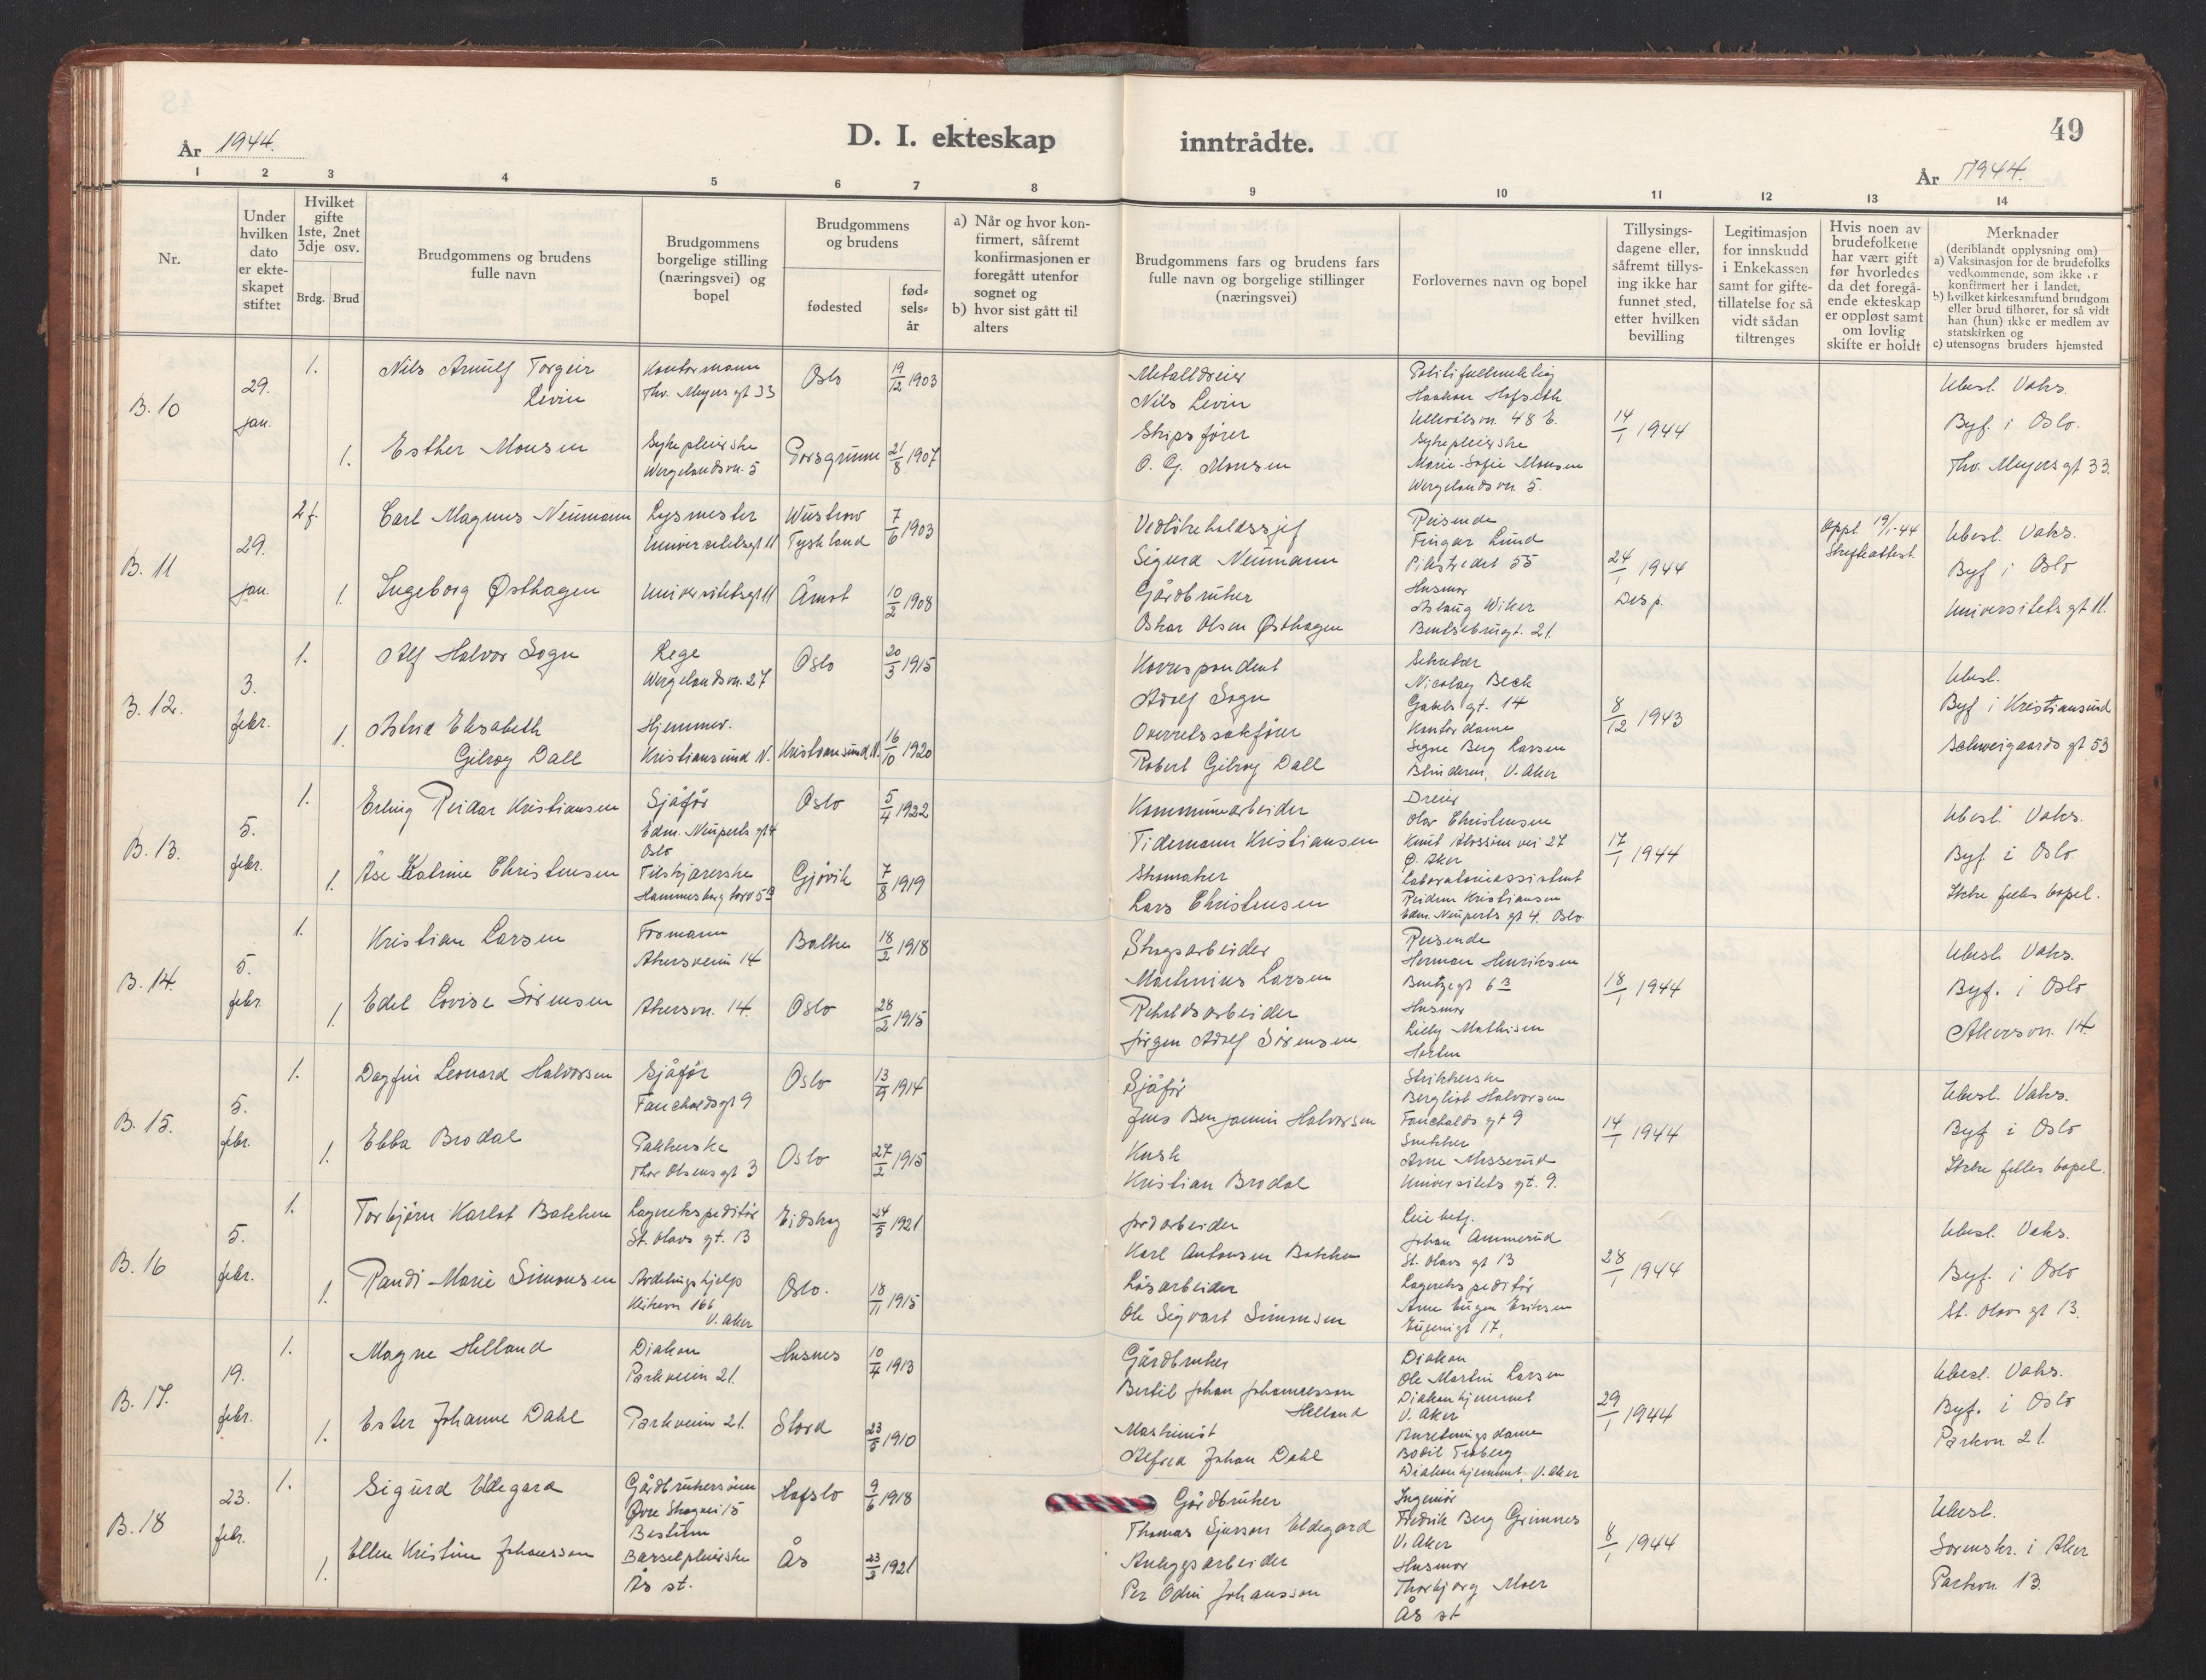 År 1944.
D. I. ekteskap
inntrådte.
49
År 1944.
1 2 3 4 5 6 7 8 9 10 11 12 13 14
Nr.
Under hvilken dato er ekte-skapet stiftet
Hvilket gifte 1ste, 2net 3dje osv.
Brdg. Brud
Brudgommens og brudens fulle navn
Brudgommens borgelige stilling (næringsvei) og bopel
Brudgommens og brudens
fødested
fød-sels-år
a) Når og hvor kon-firmert, såfremt konfirmasjonen er foregått utenfor sognet og
b) hvor sist gått til alters
Brudgommens fars og brudens fars fulle navn og borgelige stillinger (næringsvei)
Forlovernes navn og bopel
Tillysings-dagene eller, såfremt tillys-ing ikke har funnet sted, etter hvilken bevilling
Legitimasjon for innskudd i Enkekassen samt for gifte-tillatelse for så vidt sådan tiltrenges
Hvis noen av brudefolkene har vært gift før hvorledes da det foregå-ende ekteskap er oppløst samt om lovlig skifte er holdt
Merknader
(deriblandt opplysning om)
a) Vaksinasjon for de brudefolks vedkommende, som ikke er konfirmert her i landet,
b) hvilket kirkesamfund brudgom eller brud tilhører, for så vidt han (hun) ikke er medlem av statskirken og
c) utensogns bruders hjemsted
B. 10
29. jan.
1.
Nils Arnulf Torgeir Levin
Kontormann
Thv. Meyers gt 33
Oslo
19/12 1903
Metalldreier
Nils Levin
Politifullmektig
Haakon Hofseth
Ullevålsvn. 48 E.
14/1 1944
Ubesl. Vaks.
Byf. i Oslo.
Thv. Meyers gt 33.
1.
Esther Monsen
Sykepleierske
Wergelandsvn. 5
Porsgrunn
21/8 1907
Skipsfører
O. G. Monsen
Sykepleierske
Marie-Sofie Monsen
Wergelandsvn. 5.
B. 11
29. jan.
2 f.
Carl Magnus Neumann
Lysmester
Universitetsgt 11
Wustrow
Tyskland
7/6 1903
Vedlikeholdssjef
Sigurd Neumann
Reisende
Fingar Lund
Pilestredet 55
24/1 1944
Disp.
Oppl. 19/1-44
Skifteattest.
Ubesl. Vaks.
Byf i Oslo
Universitetsgt 11.
1.
Ingeborg Østhagen
Universitetsgt 11
Åmot
10/2 1908
Gårdbruker
Oskar Olsen Østhagen
Husmor
Aslaug Wiker
Bentsebrugt. 21.
B. 12.
3. febr.
1.
Alf Halvor Sogn
Lege
Wergelandsvn. 27
Oslo
20/3 1915
Korrespondent
Adolf Sogn
Sekretær
Nicolay Beck
Gabels gt. 14
8/12 1943
Ubesl.
Byf i Kristiansund
Schweigaards gt 53
1.
Astrid Elisabeth
Gilroy Dall
Hjemmev.
Kristiansund N.
Kristiansund N.
16/10 1920
Overrettssakfører
Robert Gilroy Dall
Kontordame
Signe Berg Larsen
Blindern, V. Aker
B. 13.
5. febr.
1.
Erling Reidar Kristiansen
Sjåfør
Edm. Neuperts gt 4
Oslo
Oslo
5/4 1922
Kommunearbeider
Tidemann Kristiansen
Dreier
Olav Christensen
Knut Alvssons vei 27
Ø. Aker
17/1 1944
Ubesl. Vaks.
Byf i Oslo.
Ikke felles bopel.
1.
Åse Katrine Christensen
Tilskjærerske
Hammersborg torv 5 B
Gjøvik
7/8 1919
Skomaker
Lars Christensen
Laboratorieassistent
Reidun Kristiansen
Edm. Neuperts gt 4. Oslo.
B. 14.
5. febr.
1.
Kristian Larsen
Formann
Akersveien 14
Balke
18/2 1918
Skogsarbeider
Mathinius Larsen
Reisende
Herman Henriksen
Bentzegt 6 B
18/1 1944
Ubesl. Vaks.
Byf. i Oslo
Akersvn. 14.
1.
Edel Lovise Sørensen
Akersvn. 14.
Oslo
28/2 1915
Jørgen Adolf Sørensen
Husmor
Lilly Mathisen
Horten
B. 15.
5. febr.
1.
Dagfin Leonard Halvorsen
Sjåfør
Fauchaldsgt 9
Oslo
13/9 1914
Sjåfør
Jens Benjamin Halvorsen
Strikkerske
Bergliot Halvorsen
Fauchalds gt 9
14/1 1944
Ubesl. Vaks.
Byf i Oslo
Ikke felles bopel.
1.
Ebba Brodal
Pakkerske
Thor Olsens gt 3
Oslo
27/2 1915
Kusk
Kristian Brodal
Snekker
Arne Misserud
Universitets gt. 9.
B. 16
5. febr.
1.
Torbjørn Karlot Batchen
Lagerekspeditør
St. Olavs gt. 13
Eidskog
24/5 1921
Jordarbeider
Karl Antonsen Batchen
Johan Ammerud
St. Olavs gt 13
28/1 1944
Ubesl. Vaks.
Byf. i Oslo
St. Olavs gt 13.
1.
Randi-Marie Simonsen
Avdelingshjelp
V. Aker
Oslo.
18/11 1915
Løsarbeider
Ole Sigvart Simonsen
Lagerekspeditør
Arne Eugen Eriksen
Eugenigt 17,
B. 17.
19. febr.
1.
Magne Helland
Diakon
Parkveien 21.
Husnes
10/4 1913
Gårdbruker
Bertil Johan Johannesson
Helland
Diakon
Ole Martin Larsen
Diakonhjemmet
V. Aker
29/1 1944
Ubesl. Vaks.
Byf. i Oslo
Parkvn. 21.
1.
Ester Johanne Dahl
Parkveien 21.
Stord
23/5 1910
Maskinist
Alfred Johan Dahl
Anretningsdame
Bodil Tedberg
Diakonhjemmet, V. Aker
B. 18
23. febr.
1.
Sigurd Eldegard
Gårdbrukersønn
Øvre Skogvei 15
Bestum
Hafslo
9/6 1918
Gårdbruker
Thomas Sjursson Eldegard
Ingeniør
Fredrik Berg Grimnes
V. Aker
8/1 1944
Ubesl.
Sorenskr. i Aker
Parkvn. 13.
1.
Ellen Kristine Johansson
Barselpleierske
Ås st.
Ås
23/3 1921
Anleggsarbeider
Per Odin Johansson
Husmor
Thorbjørg Moer
Ås st